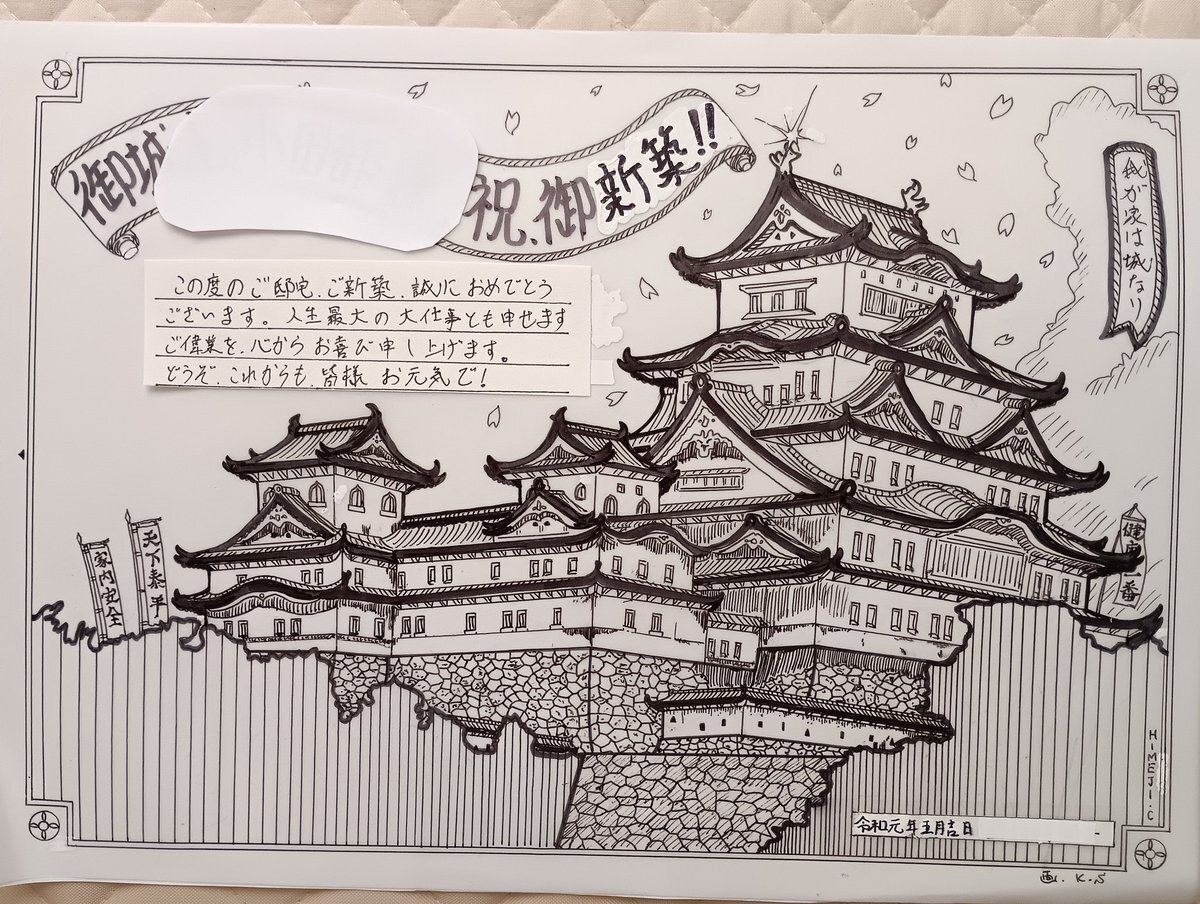 御城
祝、御新築!!
我が家は城なり
この度のご邸宅、ご新築、誠におめでとう
ございます。人生最大の大仕事とも申せます
ご偉業を、心からお喜び申し上げます。
どうぞ、これからも、皆様 お元気で!
天下泰平
家内安全
健康一番
HIMEJI.C
令和元年五月吉日
画. K.S